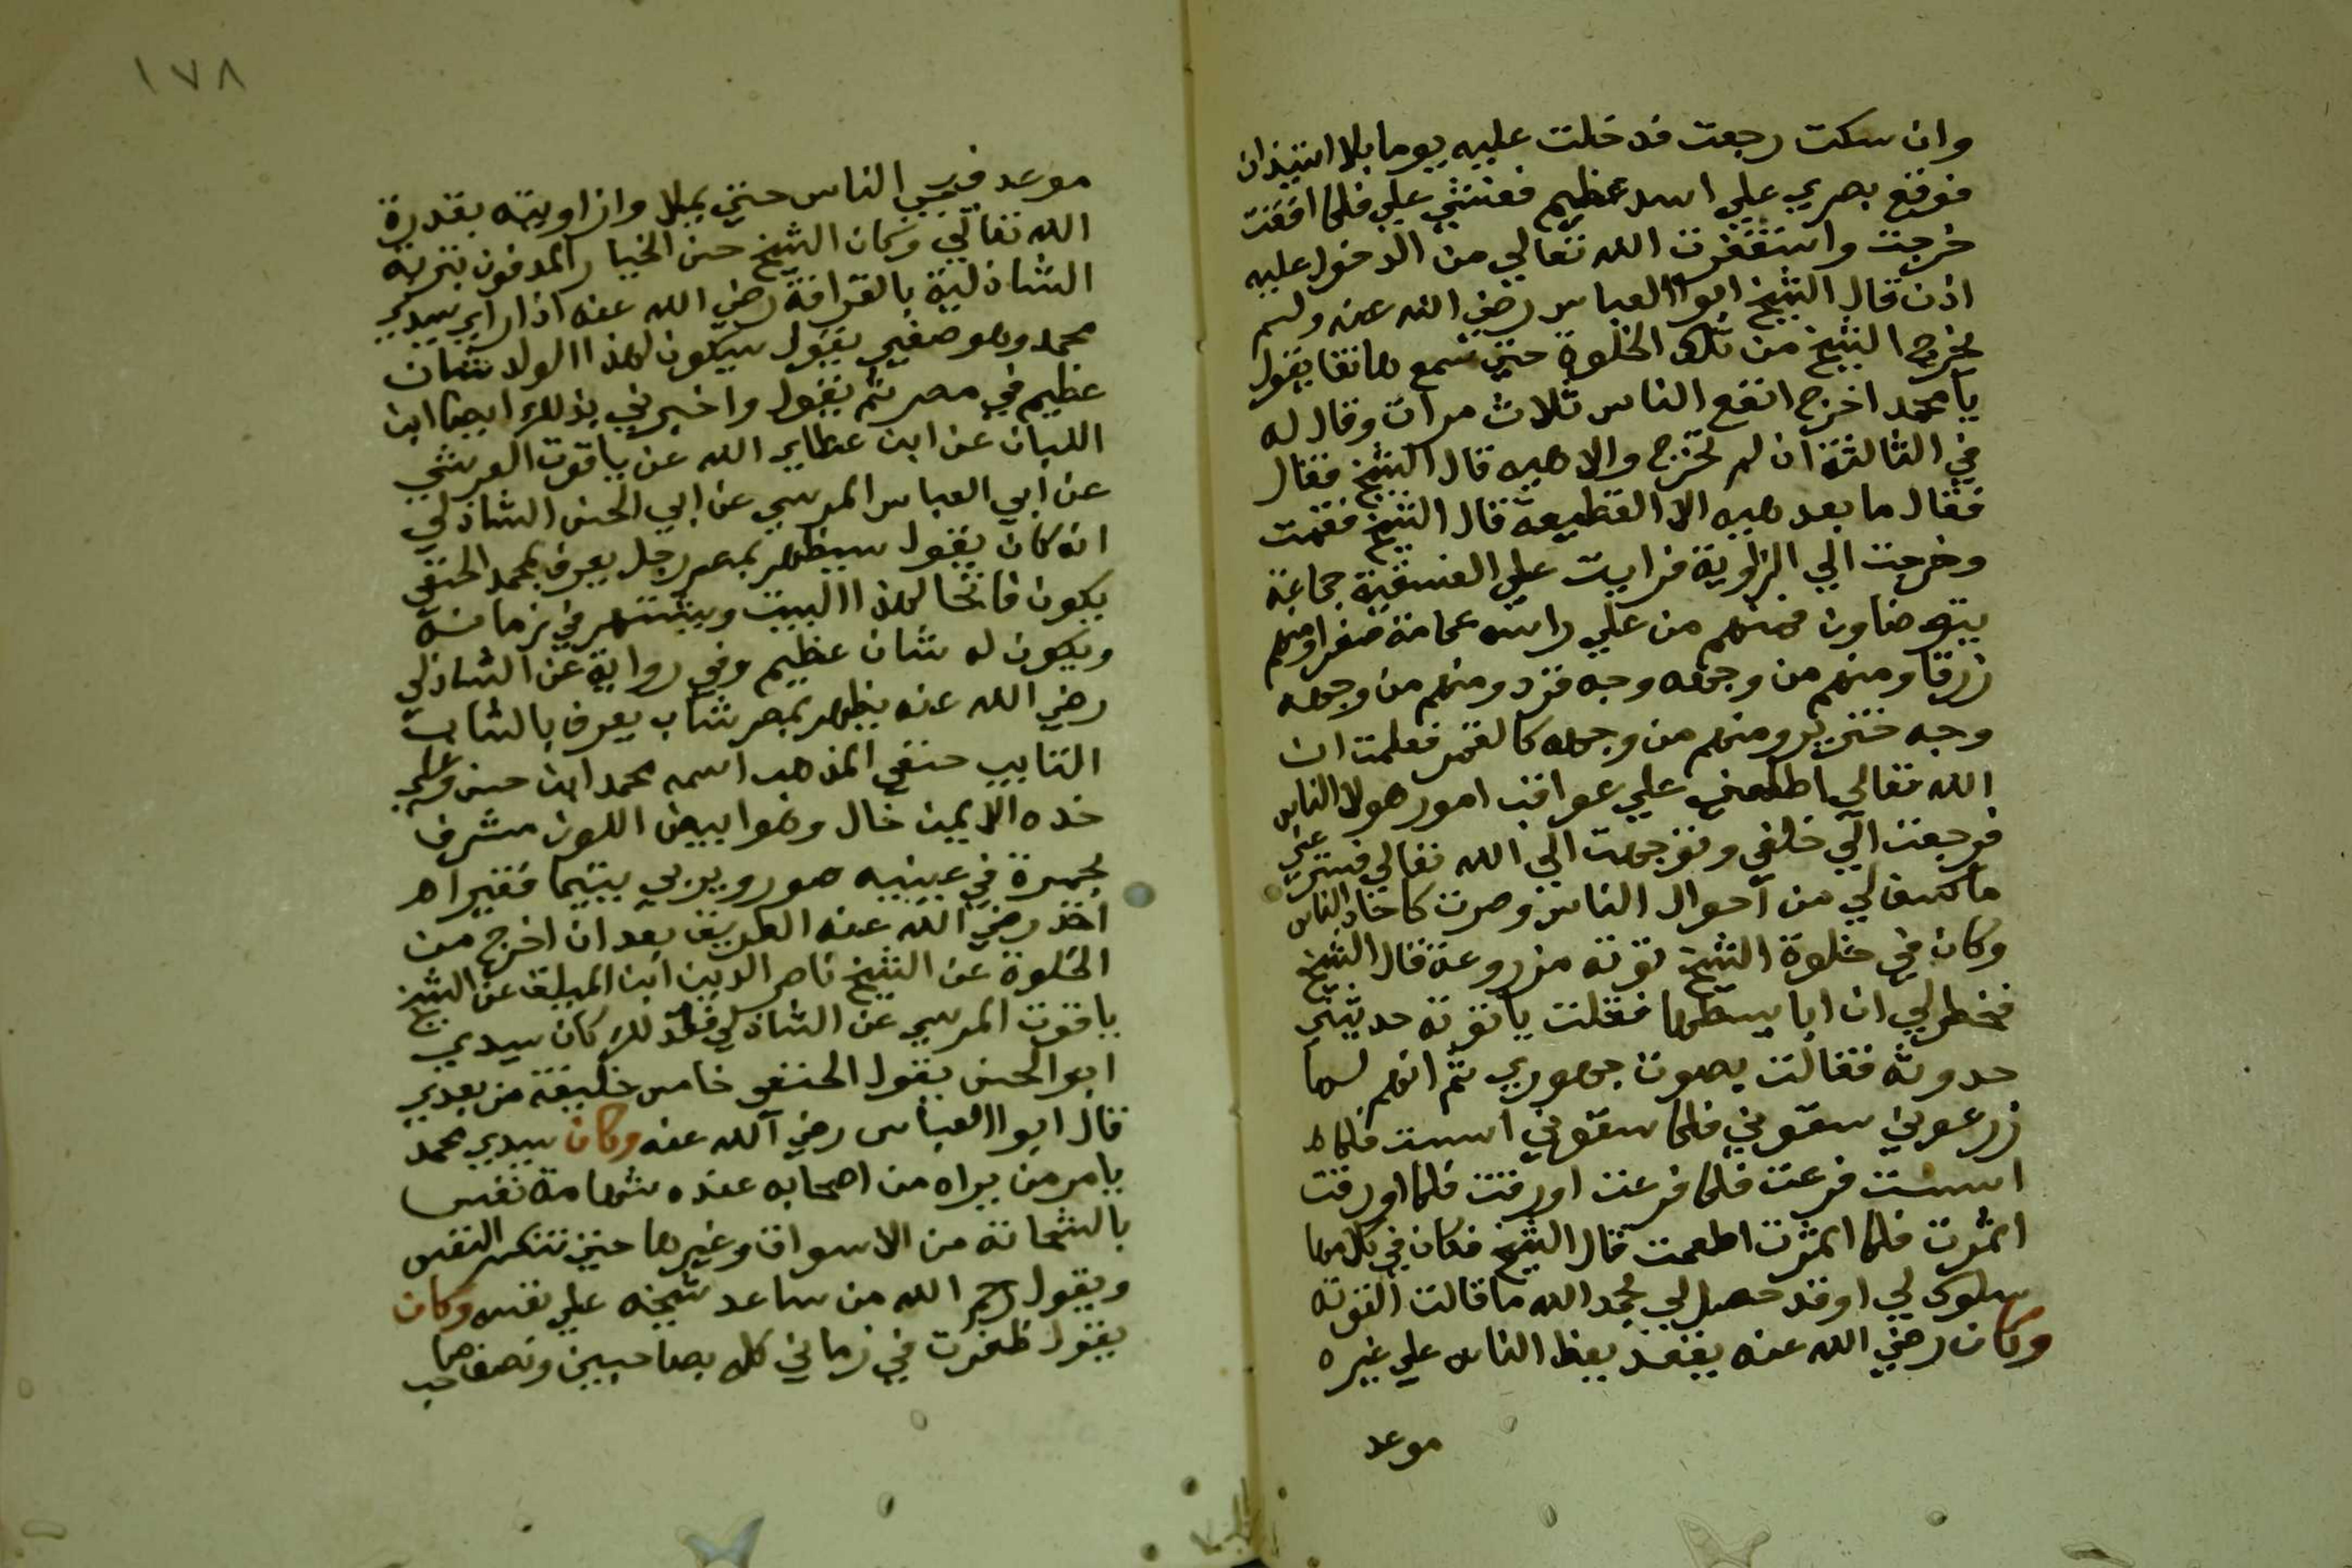 وان سكت رجعت فدخلت عليه يوما بلا استيذان
فوقع بصري علي اسد عظيم فغشي علي فلما افقت
خرجت واستغفرت الله تعالي من الدخول عليه
اذن قال الشيخ ابوا العباس رضي الله عنه ولم
يخرج الشيخ من تلك الخلوة حتي سمع هاتفا يقول
يا محمد اخرج انفع الناس ثلاث مرات وقال له
في الثالثة ان لم تخرج والا هيه قال الشيخ فقال
فقال ما بعد هيه الا القطيعة قال الشيخ فقمت
وخرجت الي الزاوية فرايت علي الفسقية جماعة
يتوضاون فمنهم من علي راسه عمامة صفرا ومنهم
زرقا ومنهم من وجهه وجه قرد ومنهم من وجهه
وجه خنزير ومنهم من وجهه كالقمر فعلمت ان
الله تعالي اطلعني علي عواقب امور هولا الناس
فرجعت الي خلفي وتوجهت الي الله تعالي فستر عني
ما كشف لي من احوال الناس وصرت كاحاد الناس
وكان في خلوة الشيخ توتة مزروعة قال الشيخ
فخطر لي ان اباسطها فقلت يا توتة حدثيني
حدوتة فقالت بصوت جهوري نعم انهم لما
زرعوني سقوني فلما سقوني اسست فلما
اسست فرعت فلما فرعت اورقت فلما اورقت
اثمرت فلما اثمرت اطعمت قال الشيخ فكان في كلامها
سلوك لي اوقد حصل لي بحمد الله ما قالت التوتة
وكان رضي الله عنه يعظ الناس علي غيره
موعد
١٧٨
موعد فيجي الناس حتي يملاوا زاويته بقدرة
الله تعالي وكان الشيخ حسن الخباز المدفون بتربة
الشاذلية بالقرافة رضي الله عنه اذا راي سيدي
محمد وهو صغير يقول سيكون لهذا الولد شان
عظيم في مصر ثم يقول واخبرني بذلك ايضا ابن
اللبان عن ابن عطاي الله عن ياقوت العرشي
عن ابي العباس المرسي عن ابي الحسن الشاذلي
انه كان يقول سيظهر بمصر رجل يعرف بمحمد الحنفي
يكون فاتحا لهذا البيت ويشتهر في زمانه
ويكون له شان عظيم وفي رواية عن الشاذلي
رضي الله عنه يظهر بمصر شاب يعرف بالشاب
التايب حنفي المذهب اسمه محمد ابن حسن وعلي
خده الايمن خال وهو ابيض اللون مشرف
بحمرة في عينيه حور ويربي يتيما فقيرا ه
اخذ رضي الله عنه الطريق بعد ان اخرج من
الخلوة عن الشيخ ناصر الدين ابن الميلق عن الشيخ
ياقوت المرسي عن الشاذلي فلذلك كان سيدي
ابو الحسن يقول الحنفي خامس خليفة من بعدي
قال ابوا العباس رضي الله عنه وكان سيدي محمد
يامر من يراه من اصحابه عنده شهامة نفس
بالشحاتة من الاسواق وغيرها حتي تنكسر النفس
ويقول رحم الله من ساعد شيخه علي نفسه وكان
يقول ظفرت في زماني كله بصاحبين ونصف صاحب